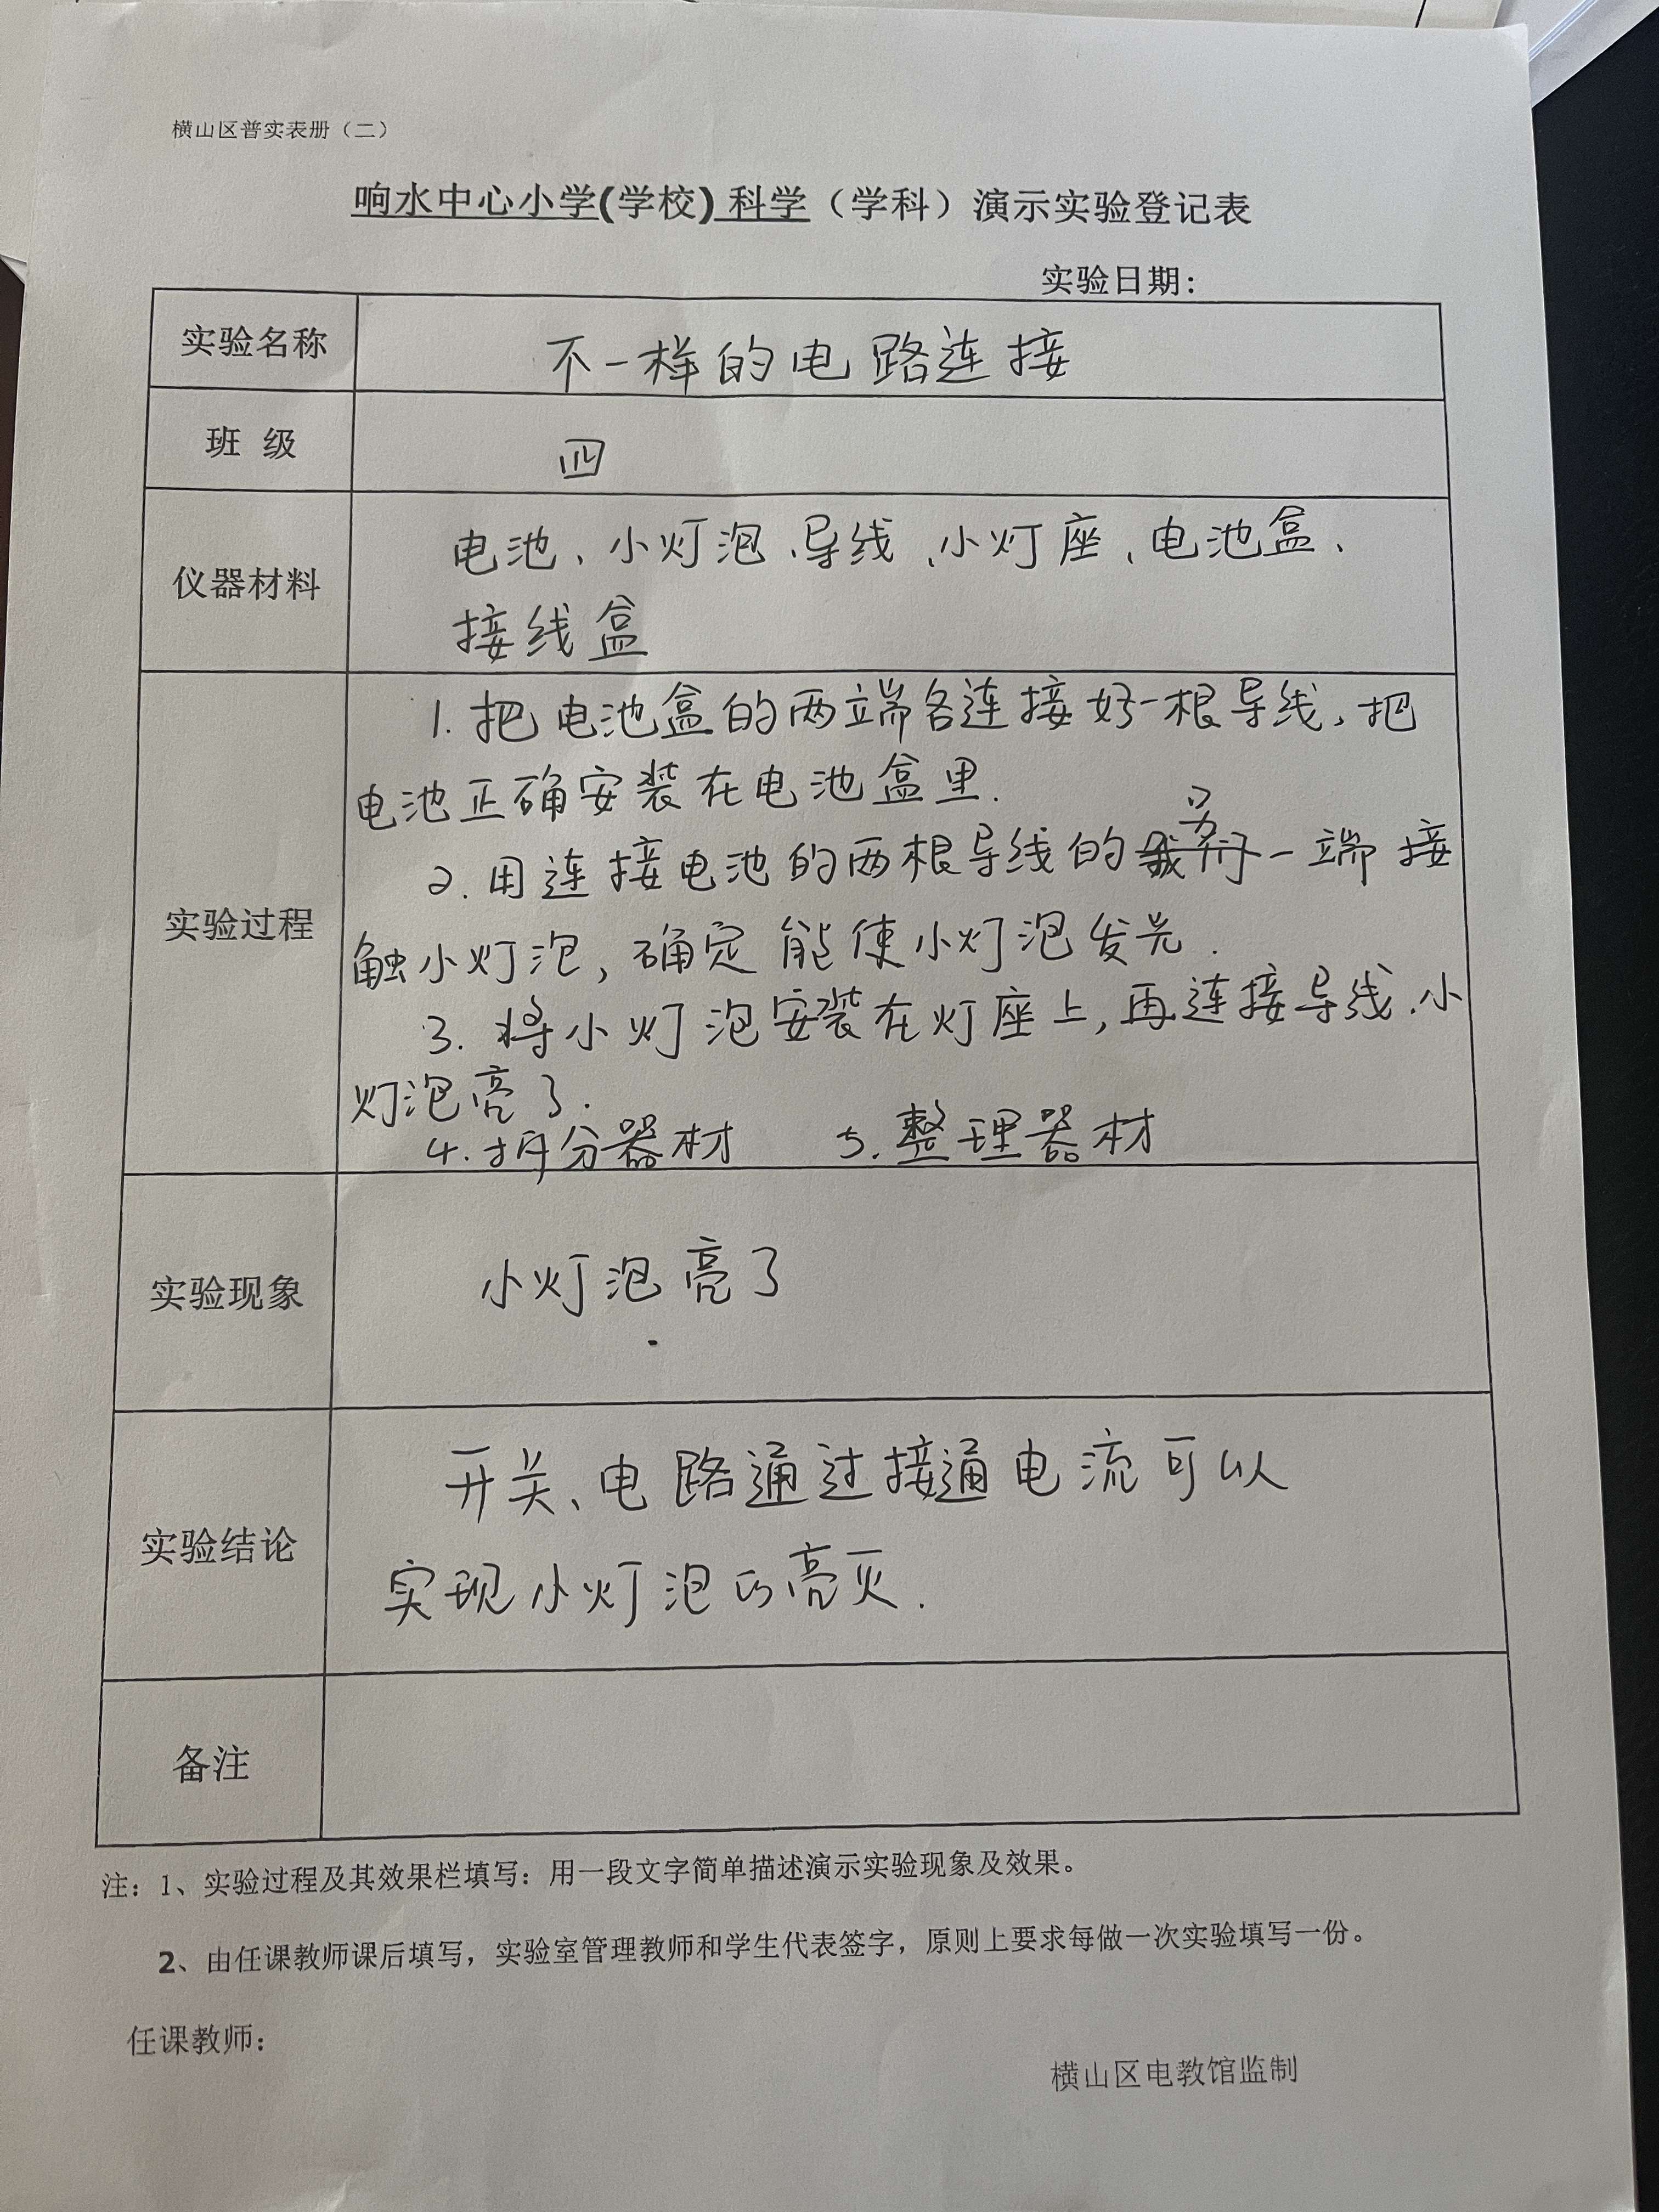 横山区普实表册（二）
响水中心小学(学校) 科学（学科）演示实验登记表
实验日期：
实验名称 不一样的电路连接
班 级 四
仪器材料 电池、小灯泡、导线、小灯座、电池盒、
接线盒
实验过程
1. 把电池盒的两端各连接好一根导线，把
电池正确安装在电池盒里.
2. 用连接电池的两根导线的另一端接
触小灯泡，确定能使小灯泡发光.
3. 将小灯泡安装在灯座上，再连接导线.小
灯泡亮了.
4. 拆分器材 5. 整理器材
实验现象 小灯泡亮了
实验结论 开关、电路通过接通电流可以
实现小灯泡的亮灭.
备注
注：1、实验过程及其效果栏填写：用一段文字简单描述演示实验现象及效果。
2、由任课教师课后填写，实验室管理教师和学生代表签字，原则上要求每做一次实验填写一份。
任课教师：
横山区电教馆监制